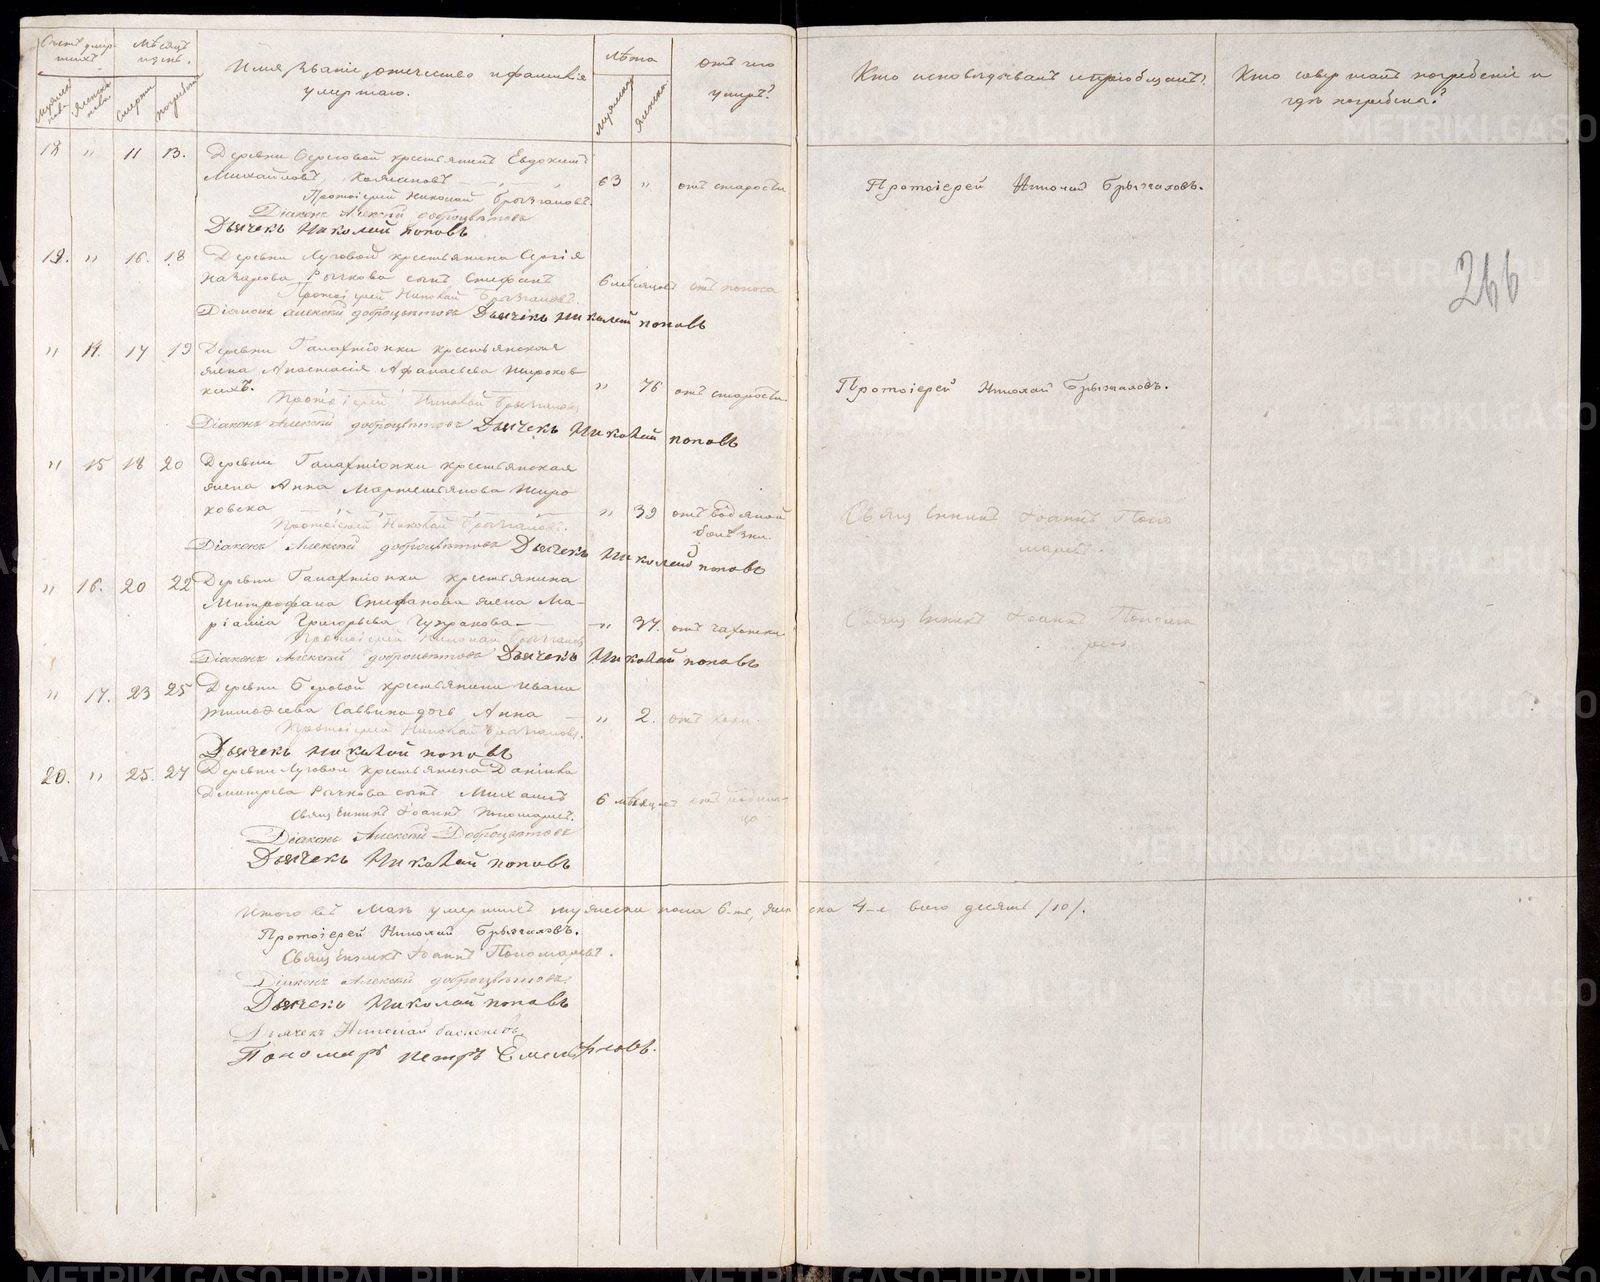 Счетъ умер-
шихъ.
Мѣсяцъ
и день.
Имя, званіе, отечество и фамилія
умершаго.
Лѣта
Отъ чего
умеръ?
Кто исповѣдывалъ и пріобщалъ?
Кто совершалъ погребеніе и
гдѣ погребены?
Мужеска
пола
Женска
пола
Смерти
Погребенія
Мужеска
Женска
18 " 11 13. Деревни Береговой крестьянинъ Евдокимъ
Михайловъ
63 " отъ старости
Протоіерей Николай Брызгаловъ.
Протоіерей Николай Брызгаловъ.
Діаконъ Алексій Доброцвѣтовъ
Дьячекъ Николай Поповъ
19. " 16. 18 Деревни Луговой крестьянина Сергія
Назарова Рычкова сынъ
6 мѣсяцевъ отъ поноса
Протоіерей Николай Брызгаловъ.
Діаконъ Алексій Доброцвѣтовъ Дьячекъ Николай Поповъ
266
" 14. 17 19 Деревни крестьянская
жена Анастасія Афанасьева Широков-
кихъ.
" 76 отъ старости
Протоіерей Николай Брызгаловъ.
Протоіерей Николай Брызгаловъ
Діаконъ Алексій Доброцвѣтовъ Дьячекъ Николай Поповъ
" 15 18 20 Деревни крестьянская
жена Анна Мартемьянова Широ
ковска
" 39 отъ водяной
болѣзни.
Священникъ Іоаннъ Поно
маревъ.
Протоіерей Николай Брызгаловъ.
Діаконъ Алексій Доброцвѣтовъ Дьячекъ Николай Поповъ
" 16. 20 22 Деревни крестьянина
Митрофана жена Ма-
ріамна Григорьева
" 37. отъ чахотки
Священникъ Іоаннъ Понома
ревъ
Протоіерей Николай Брызгаловъ
Діаконъ Алексій Доброцвѣтовъ Дьячекъ Николай Поповъ
" 17. 23 25 Деревни крестьянина Ивана
Тимоѳеева Саввина дочь Анна
" 2. отъ кори.
Протоіерей Николай Брызгаловъ.
Дьячекъ Николай Поповъ
20. " 25. 27 Деревни Луговой крестьянина Даніила
Дмитріева Рычкова сынъ Михаилъ
6 мѣсяцевъ отъ родимца
Священникъ Іоаннъ Пономаревъ.
Діаконъ Алексій Доброцвѣтовъ
Дьячекъ Николай Поповъ
Итого въ Маѣ умершихъ мужеска пола 6-ть, женска 4-е всего десять /10/.
Протоіерей Николай Брызгаловъ.
Священникъ Іоаннъ Пономаревъ.
Діаконъ Алексій Доброцвѣтовъ
Дьячекъ Николай Поповъ
Дьячекъ Николай
Пономарь Петръ Емельяновъ.
METRIKI.GASO-URAL.RU